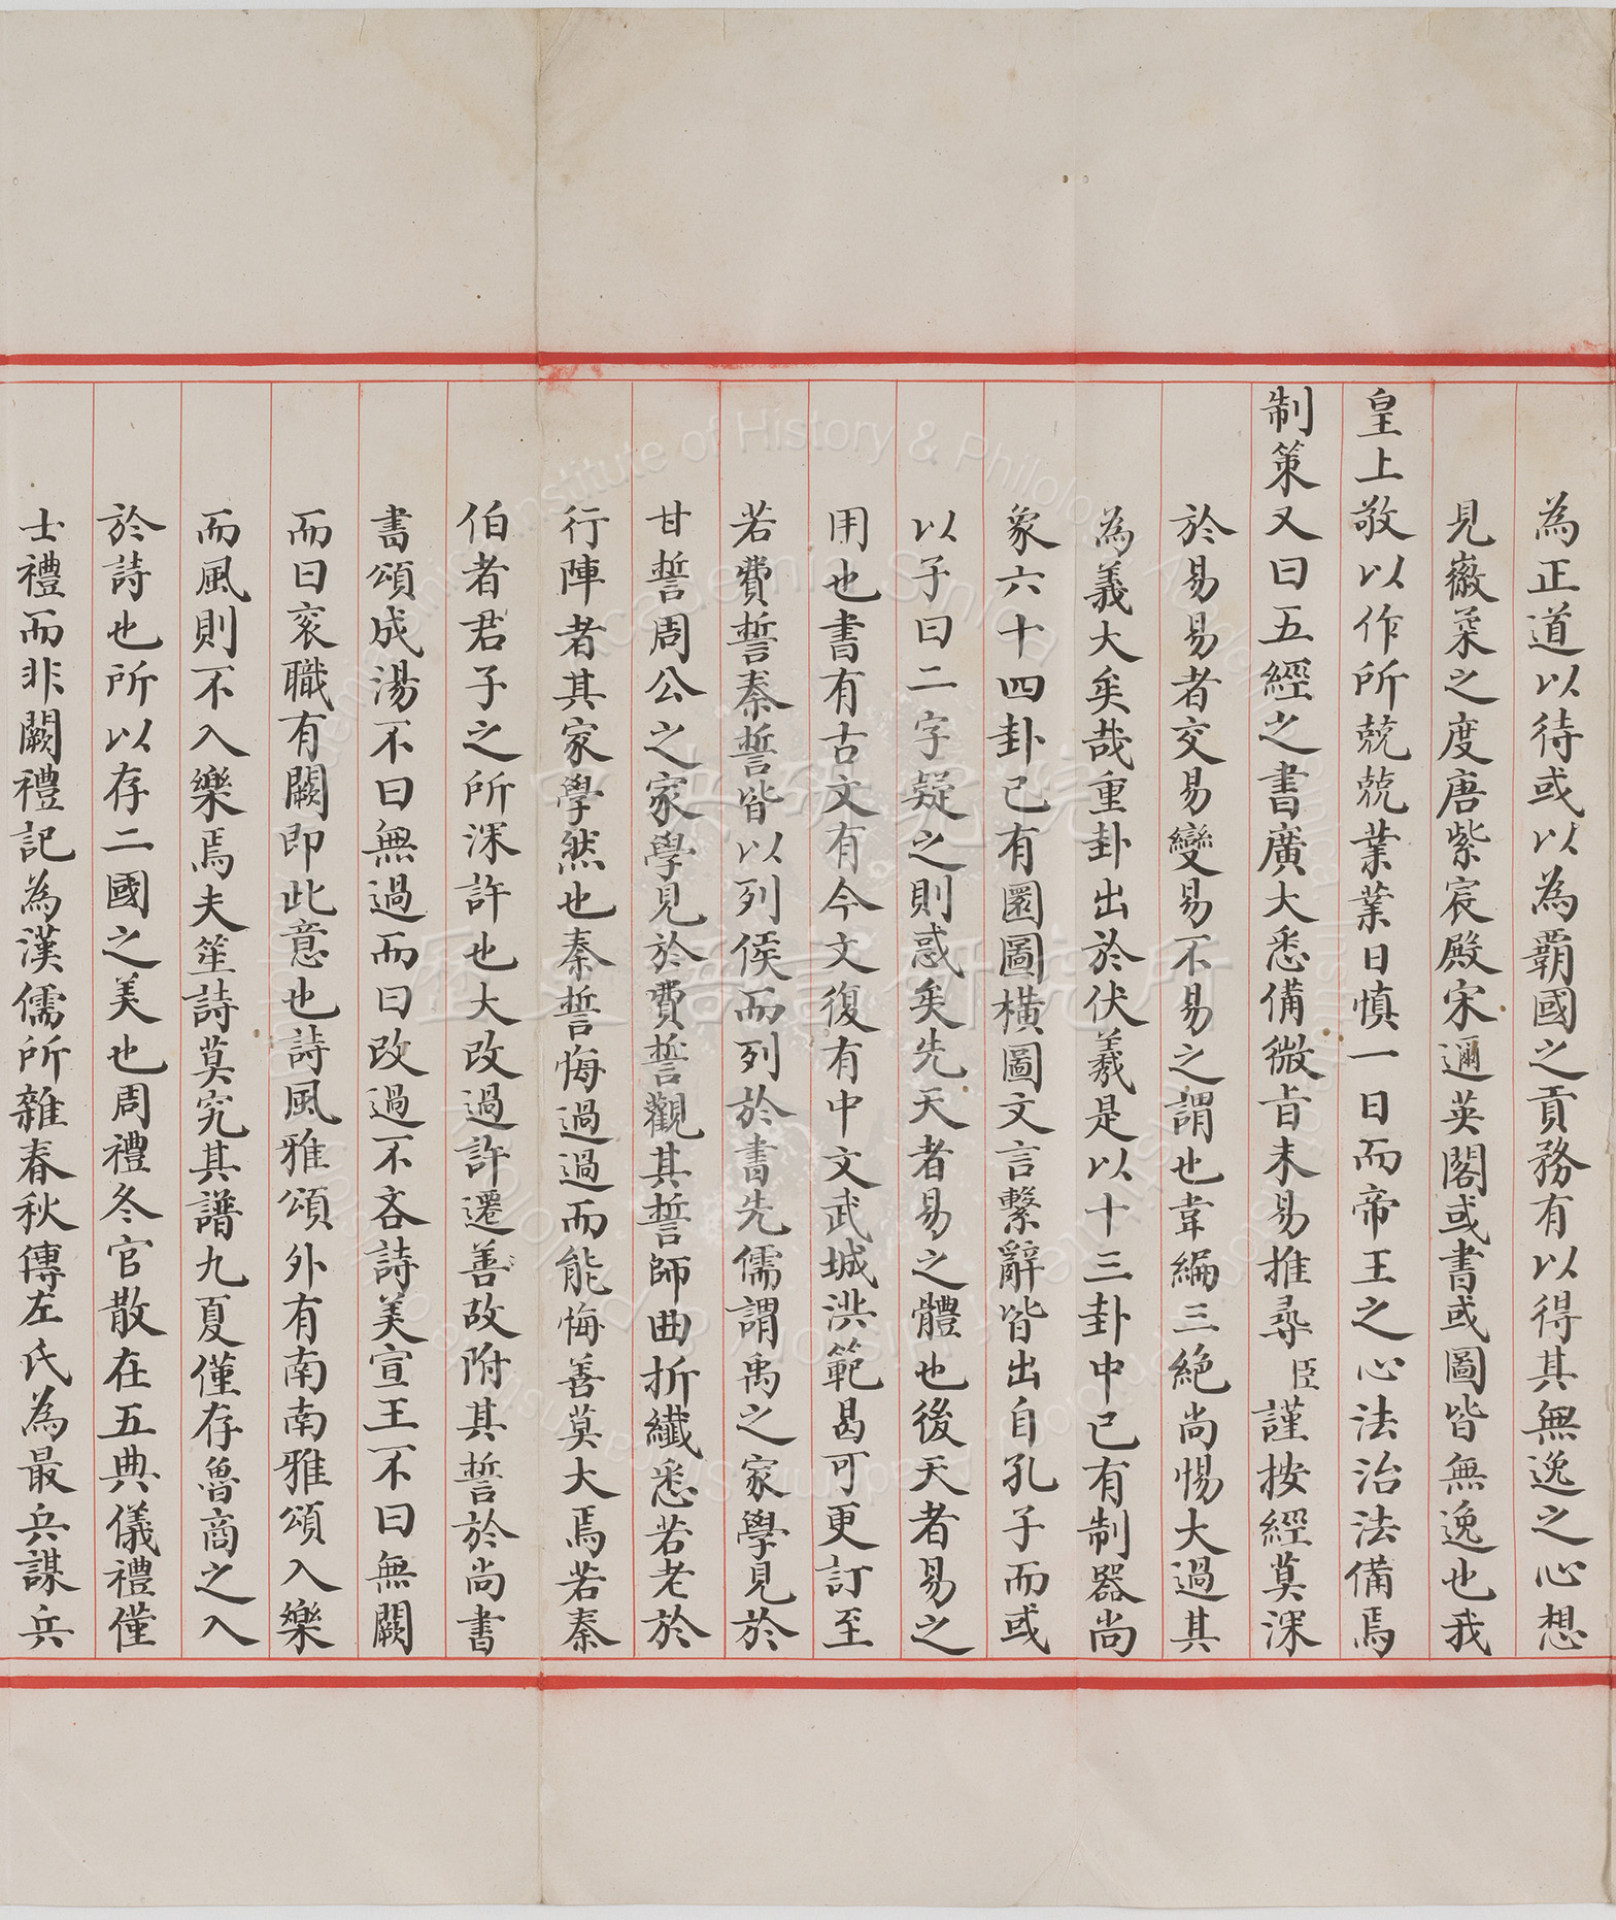 為正道以待或以為霸國之貢務有以得其無逸之心想
見徽柔之度唐紫宸殿宋邇英閣或書或圖皆無逸也我
皇上敬以作所兢兢業業日慎一日而帝王之心法治法備焉
制策又曰五經之書廣大悉備微旨未易推尋臣謹按經莫深
於易易者交易變易不易之謂也韋編三絕尚惕大過其
為義大矣哉重卦出於伏羲是以十三卦中已有制器尚
象六十四卦已有圜圖橫圖文言繫辭皆出自孔子而或
以子曰二字疑之則惑矣先天者易之體也後天者易之
用也書有古文有今文復有中文武城洪範曷可更訂至
若費誓秦誓皆以列侯而列於書先儒謂禹之家學見於
甘誓周公之家學見於費誓觀其誓師曲折纖悉若老於
行陣者其家學然也秦誓悔過過而能悔善莫大焉若秦
伯者君子之所深許也大改過許遷善故附其誓於尚書
書頌成湯不曰無過而曰改過不吝詩美宣王不曰無闕
而曰袞職有闕即此意也詩風雅頌外有南南雅頌入樂
而風則不入樂焉夫笙詩莫究其譜九夏僅存魯商之入
於詩也所以存二國之美也周禮冬官散在五典儀禮僅
士禮而非闕禮記為漢儒所雜春秋傳左氏為最兵謀兵